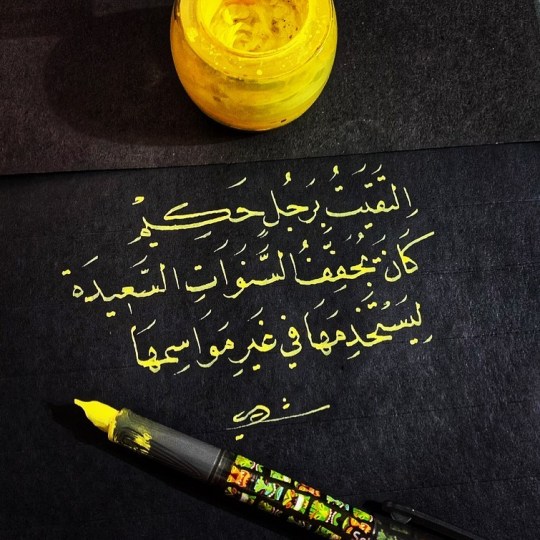 اِلتَقَيَتُ بِرَجُلٍ حَكِيمْ
كَانَ يُجَفِّفُ السَّنَوَاتِ السَّعِيدَة
لِيَسْتَخْدِمَهَا في غَيرِ مَوَاسِمِهَا